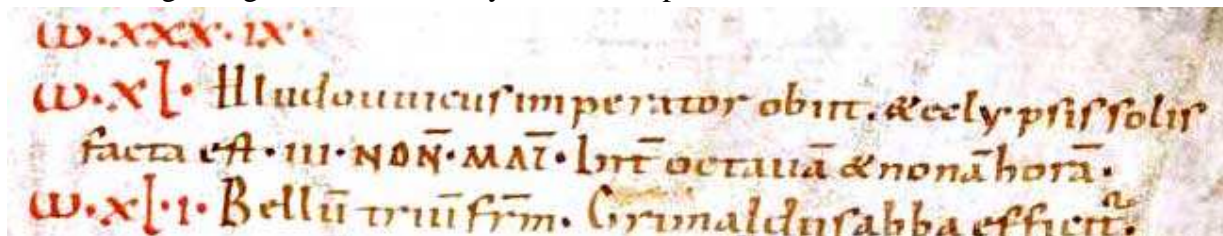 ω·xxx·ix·
ω·xl· Hludouuicus imperator obiit. & eclypsis solis
facta est·iii·NON̄·MAĪ·Int̄ octauā & nonā horā·
ω·xl·i· Bellū triū fr̄m. Grimaldus abba efficit᷑.